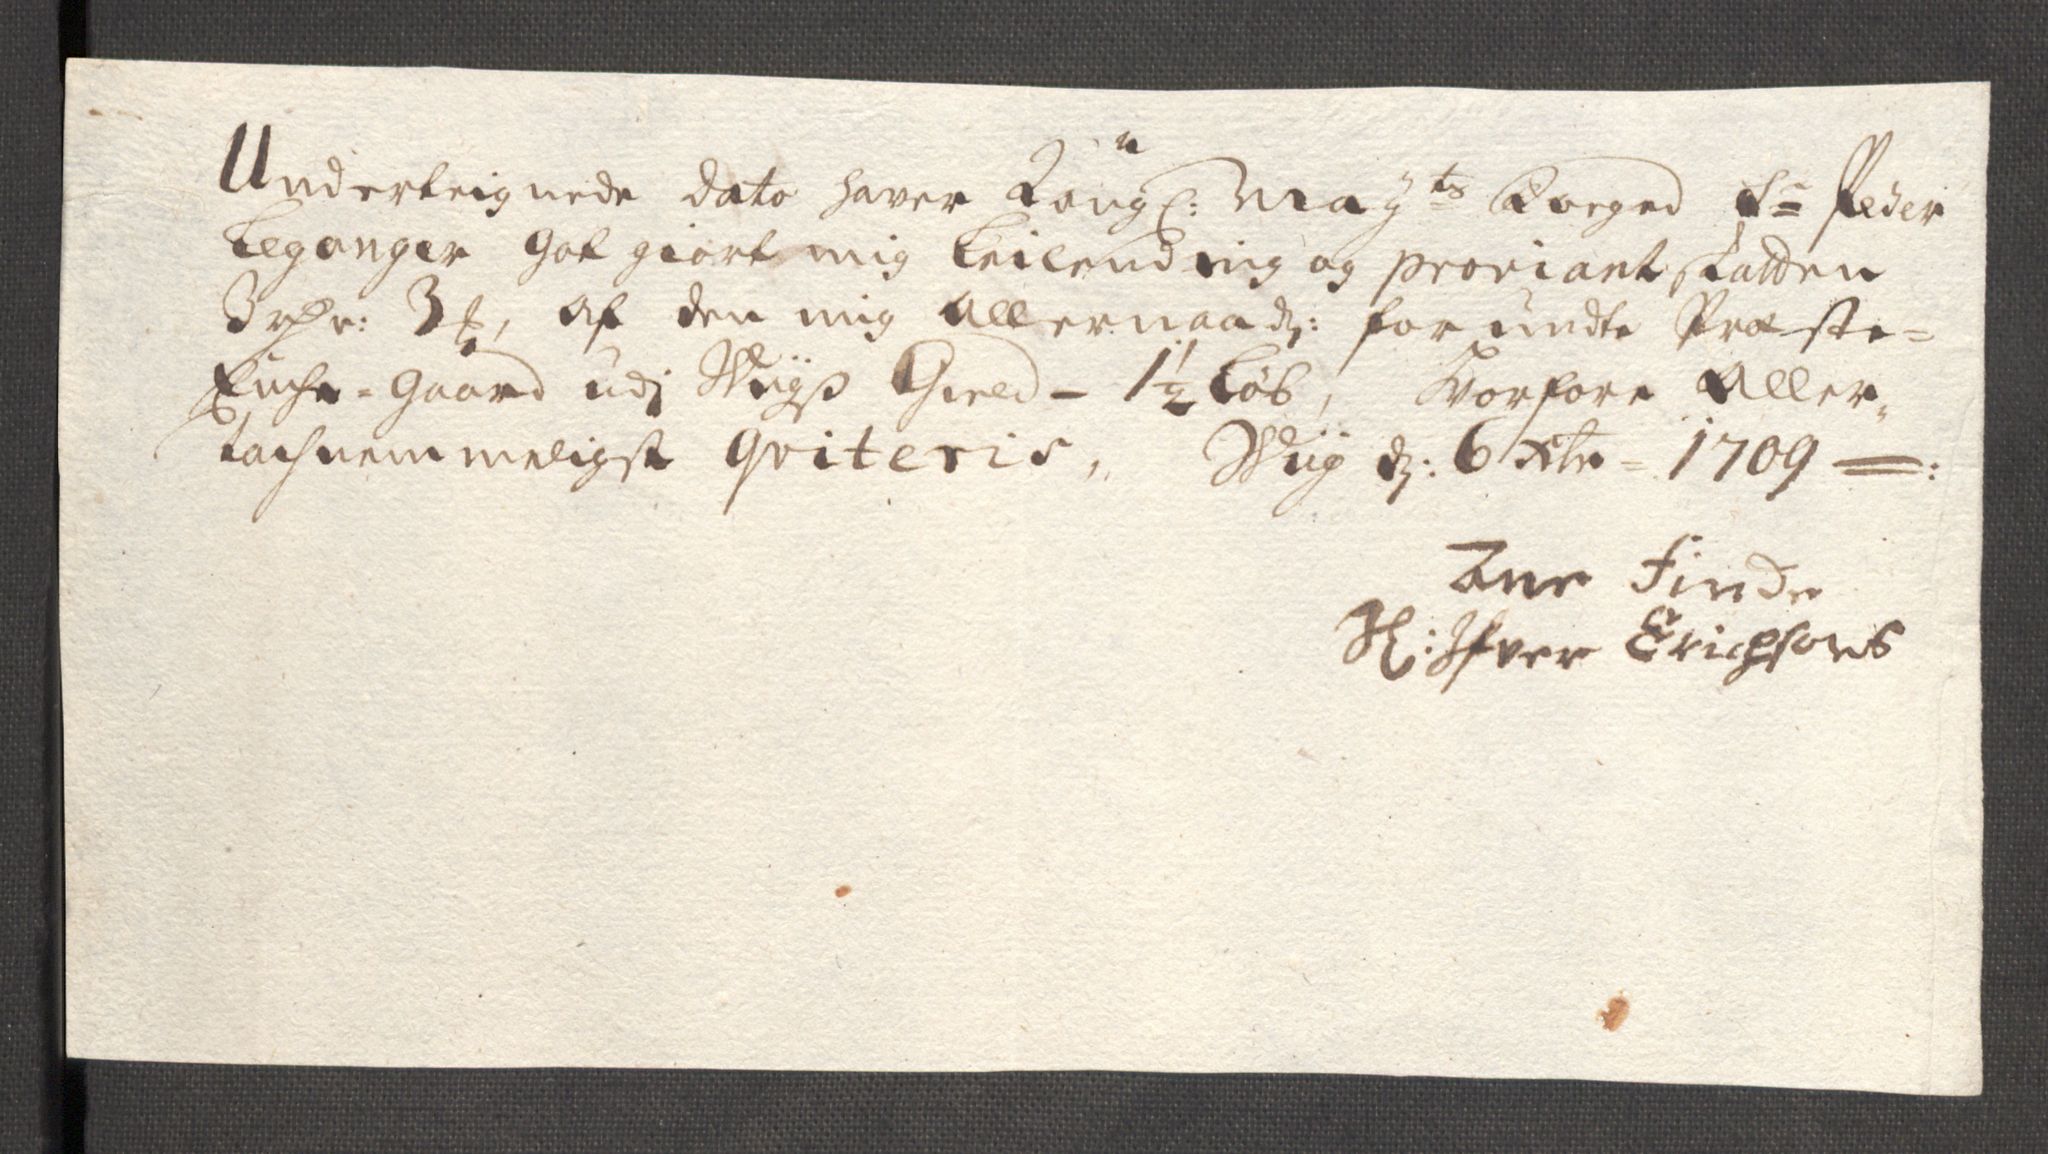 Underteignede dato haver Kongl: Mayts Foeged Sr Peder
Leganger Got giort mig Leilending og proviant skatten
3 rdlr: 3 ß, Af den mig Allernaadg: for undte Præste-
Enche-Gaard udj Wiigs Gield - 1½ Løb, Hvorfore Aller-
tachnemmeligst Qviteris, Wiig dg: 6 Xbr - 1709 —:
Ane Finde
Sl: Ifver Erichsøns